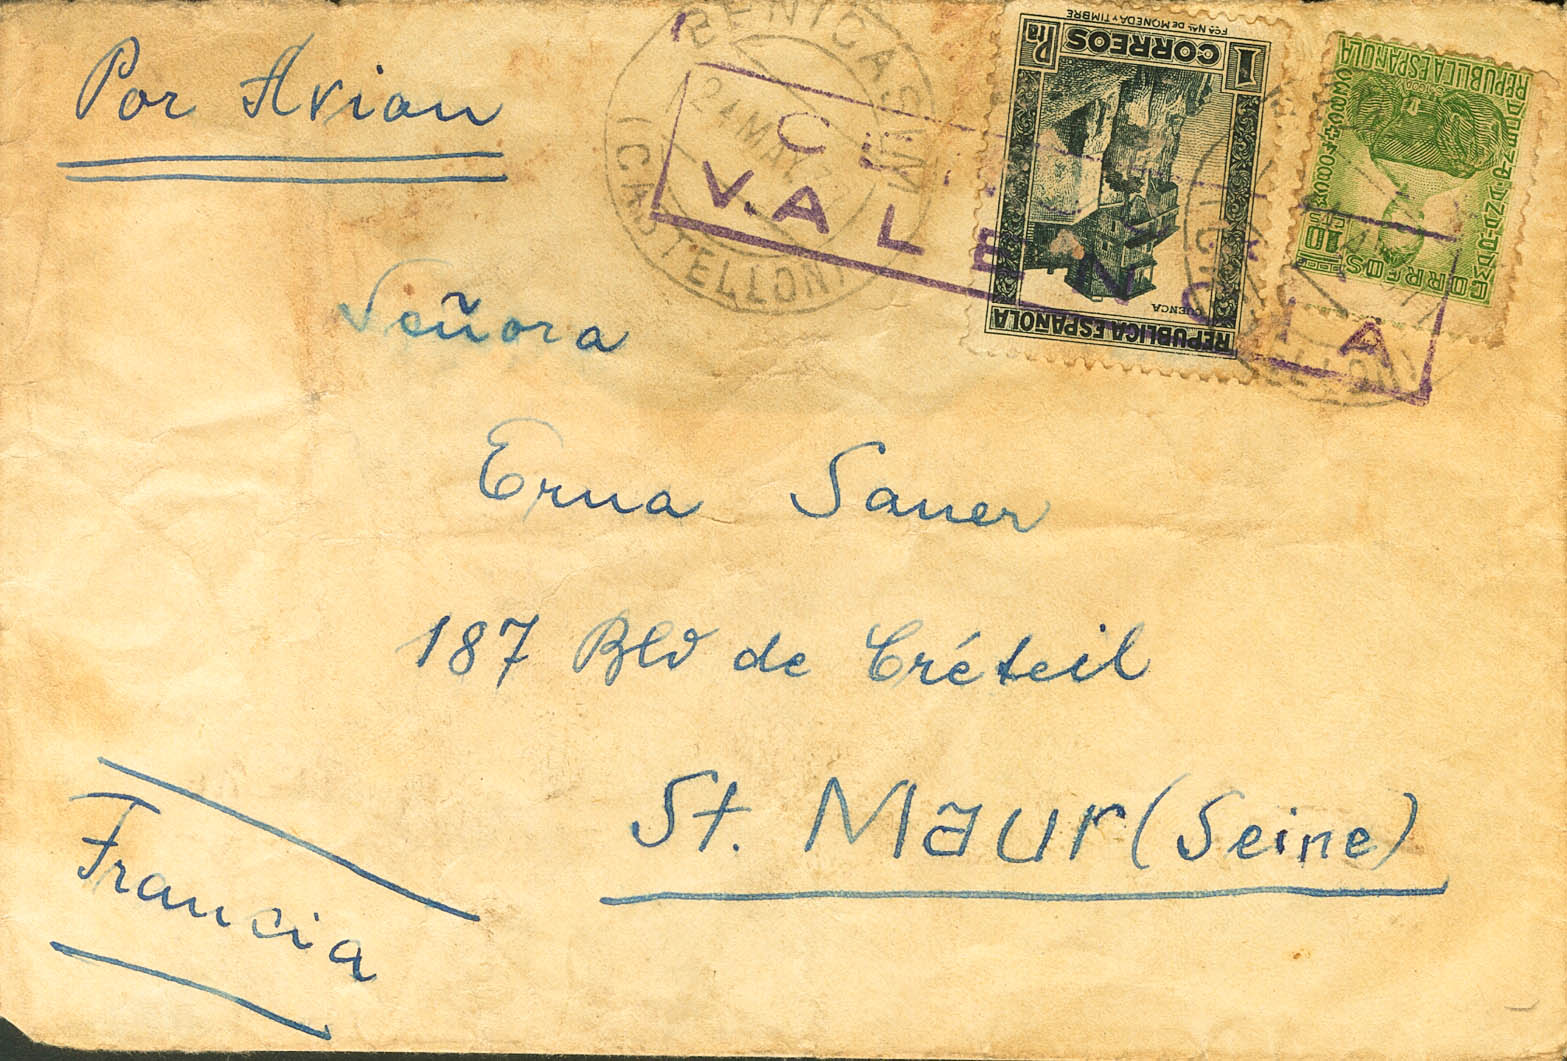 Por Avion
BENICASIM
24 MAY
(CASTELLON)
VALENCIA
FCA NAL DE MONEDA Y TIMBRE
1 CORREOS Pta
CUENCA
REPUBLICA ESPAÑOLA
REPUBLICA ESPAÑOLA
CORREOS
10
Señora
Erna Sauer
187 Blv de Créteil
St. Maur (Seine)
Francia